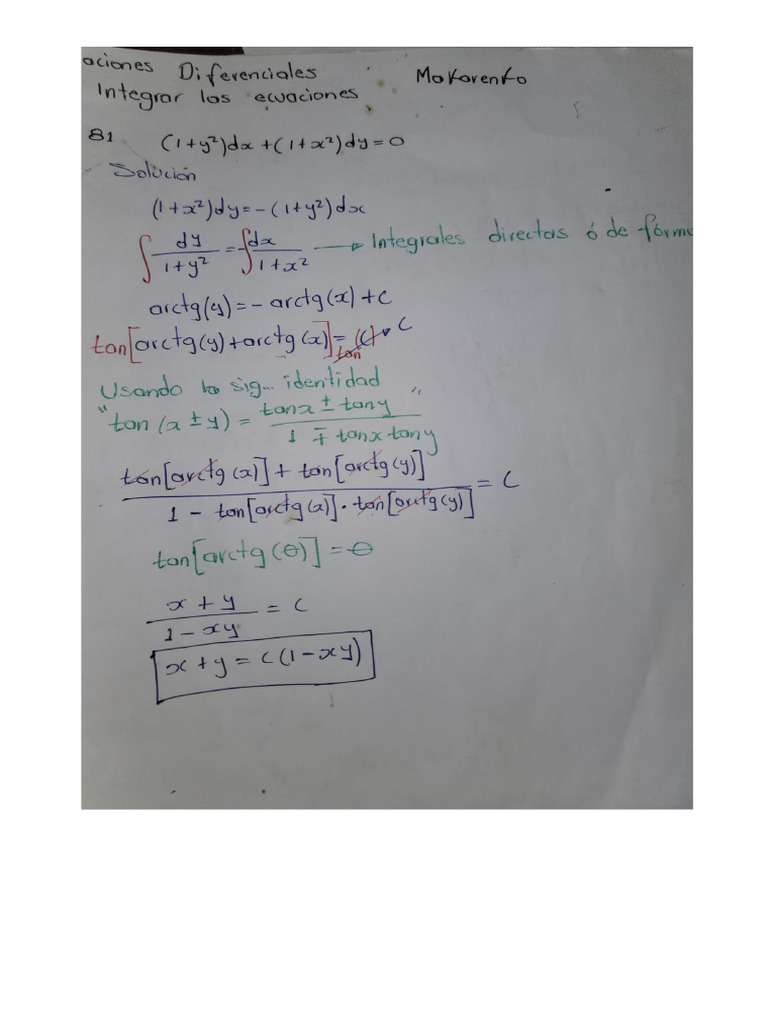 aciones Diferenciales Makarenko
Integrar las ecuaciones
81 (1+y²)dx+(1+x²)dy=0
Solución
(1+x²)dy=-(1+y²)dx
∫ dy/(1+y²) = ∫ dx/(1+x²) → Integrales directas ó de fórm
arctg(y)=-arctg(x)+c
tan[arctg(y)+arctg(x)]=tan(c) → c
Usando la sig... identidad
"tan(x±y) = (tanx ± tany)/(1 ∓ tanx tany)"
(tan[arctg(x)] + tan[arctg(y)])/(1 - tan[arctg(x)]·tan[arctg(y)]) = c
tan[arctg(θ)]=θ
(x+y)/(1-xy) = c
x+y=c(1-xy)